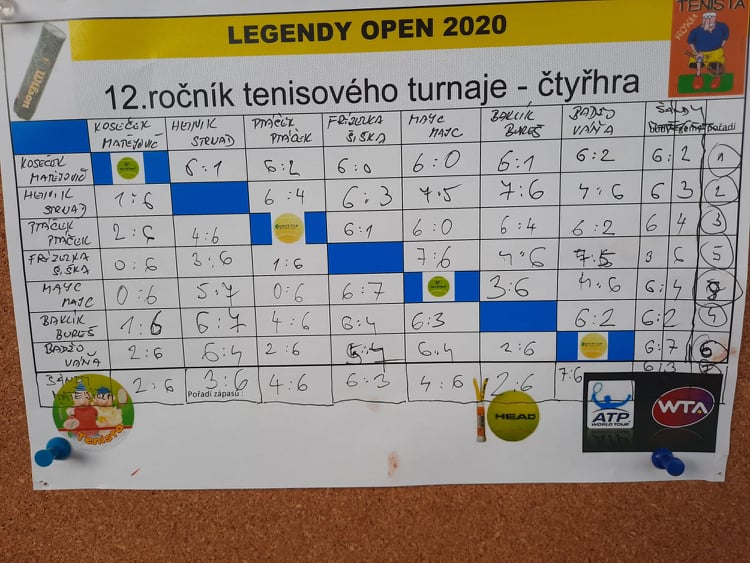 LEGENDY OPEN 2020
TENISTA
Wilson
12.ročník tenisového turnaje - čtyřhra
KOSEČEK MATĚJOVIČ HEJNIK STRNAD PTÁČEK PTÁČEK ŠIŠKA MAYC MAYC BAKLÍK BUREŠ BAĎŠO VÁŇA pořadí
KOSEČEK MATĚJOVIČ 6:1 6:2 6:0 6:0 6:1 6:2 6:2 1
HEJNIK STRNAD 1:6 6:4 6:3 7:5 7:6 4:6 6 3 2
PTÁČEK PTÁČEK 2:6 4:6 6:1 6:0 6:4 6:2 6 4 3
ŠIŠKA 0:6 3:6 1:6 7:6 4:6 7:5 3 6 5
MAYC MAYC 0:6 5:7 0:6 6:7 3:6 4:6 6:4
BAKLÍK BUREŠ 1:6 6:7 4:6 6:4 6:3 6:2 6:2 4
BAĎŠO VÁŇA 2:6 6:4 2:6 6:4 2:6 6:7 6
2:6 3:6 4:6 6:3 4:6 2:6 7:6 6:3
Pořadí zápasu :
Tenista
HEAD
ATP
WORLD TOUR
WTA